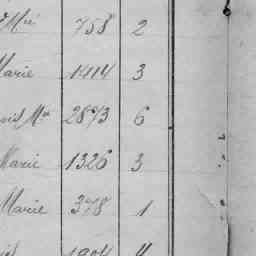 Mie 758 2
Marie 1414 3
ois Mie 2873 6
Marie 1326 3
Marie 378 1
1904 4